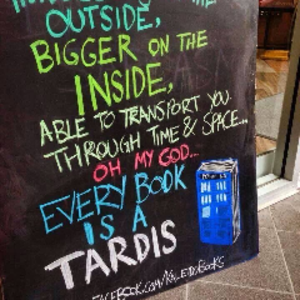 OUTSIDE,
BIGGER ON THE
INSIDE,
ABLE TO TRANSPORT YOU
THROUGH TIME & SPACE...
OH MY GOD...
EVERY BOOK
IS A
TARDIS
FACEBOOK.COM/KALEIDOBOOKS